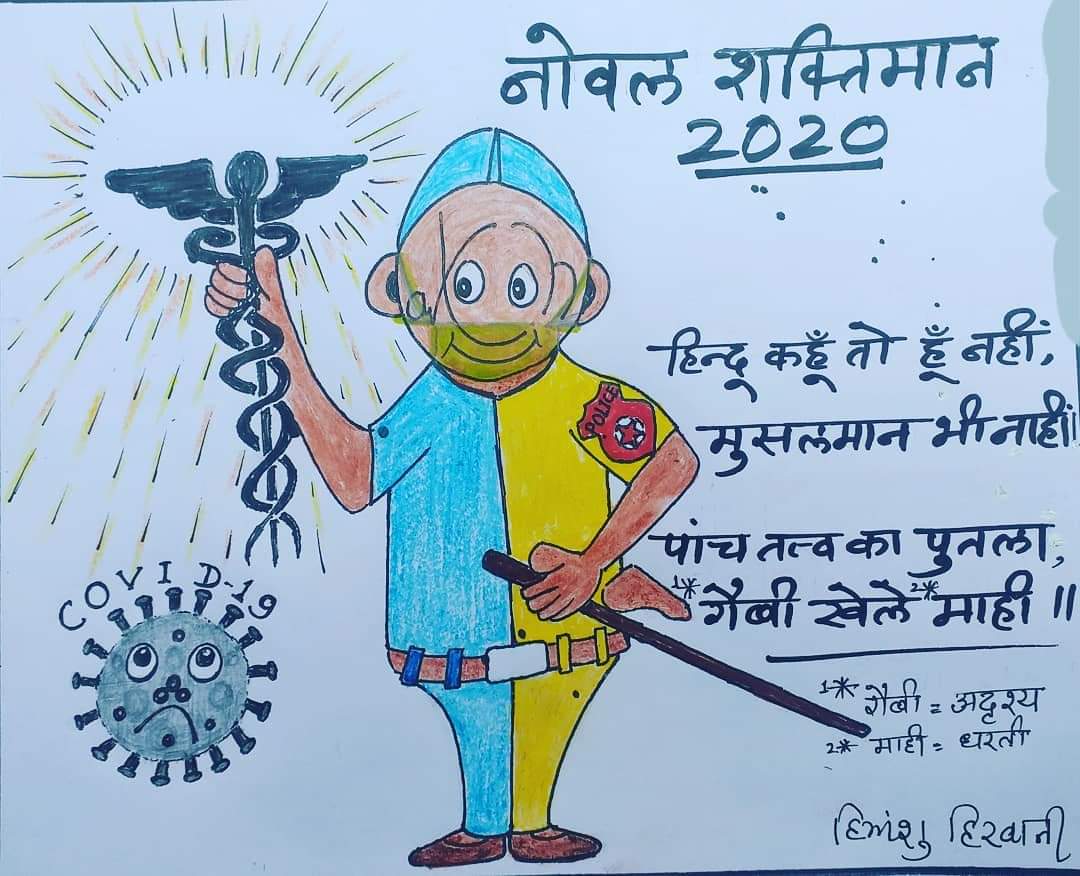 नोवल शक्तिमान
2020
हिन्दू कहूँ तो हूँ नहीं,
मुसलमान भी नाहीं॥
पांच तत्व का पुतला,
1* गैबी खेलै 2* माही ॥
1* गैबी = अदृश्य
2* माही = धरती
हिमांशु हिरवानी
POLICE
COVID-19